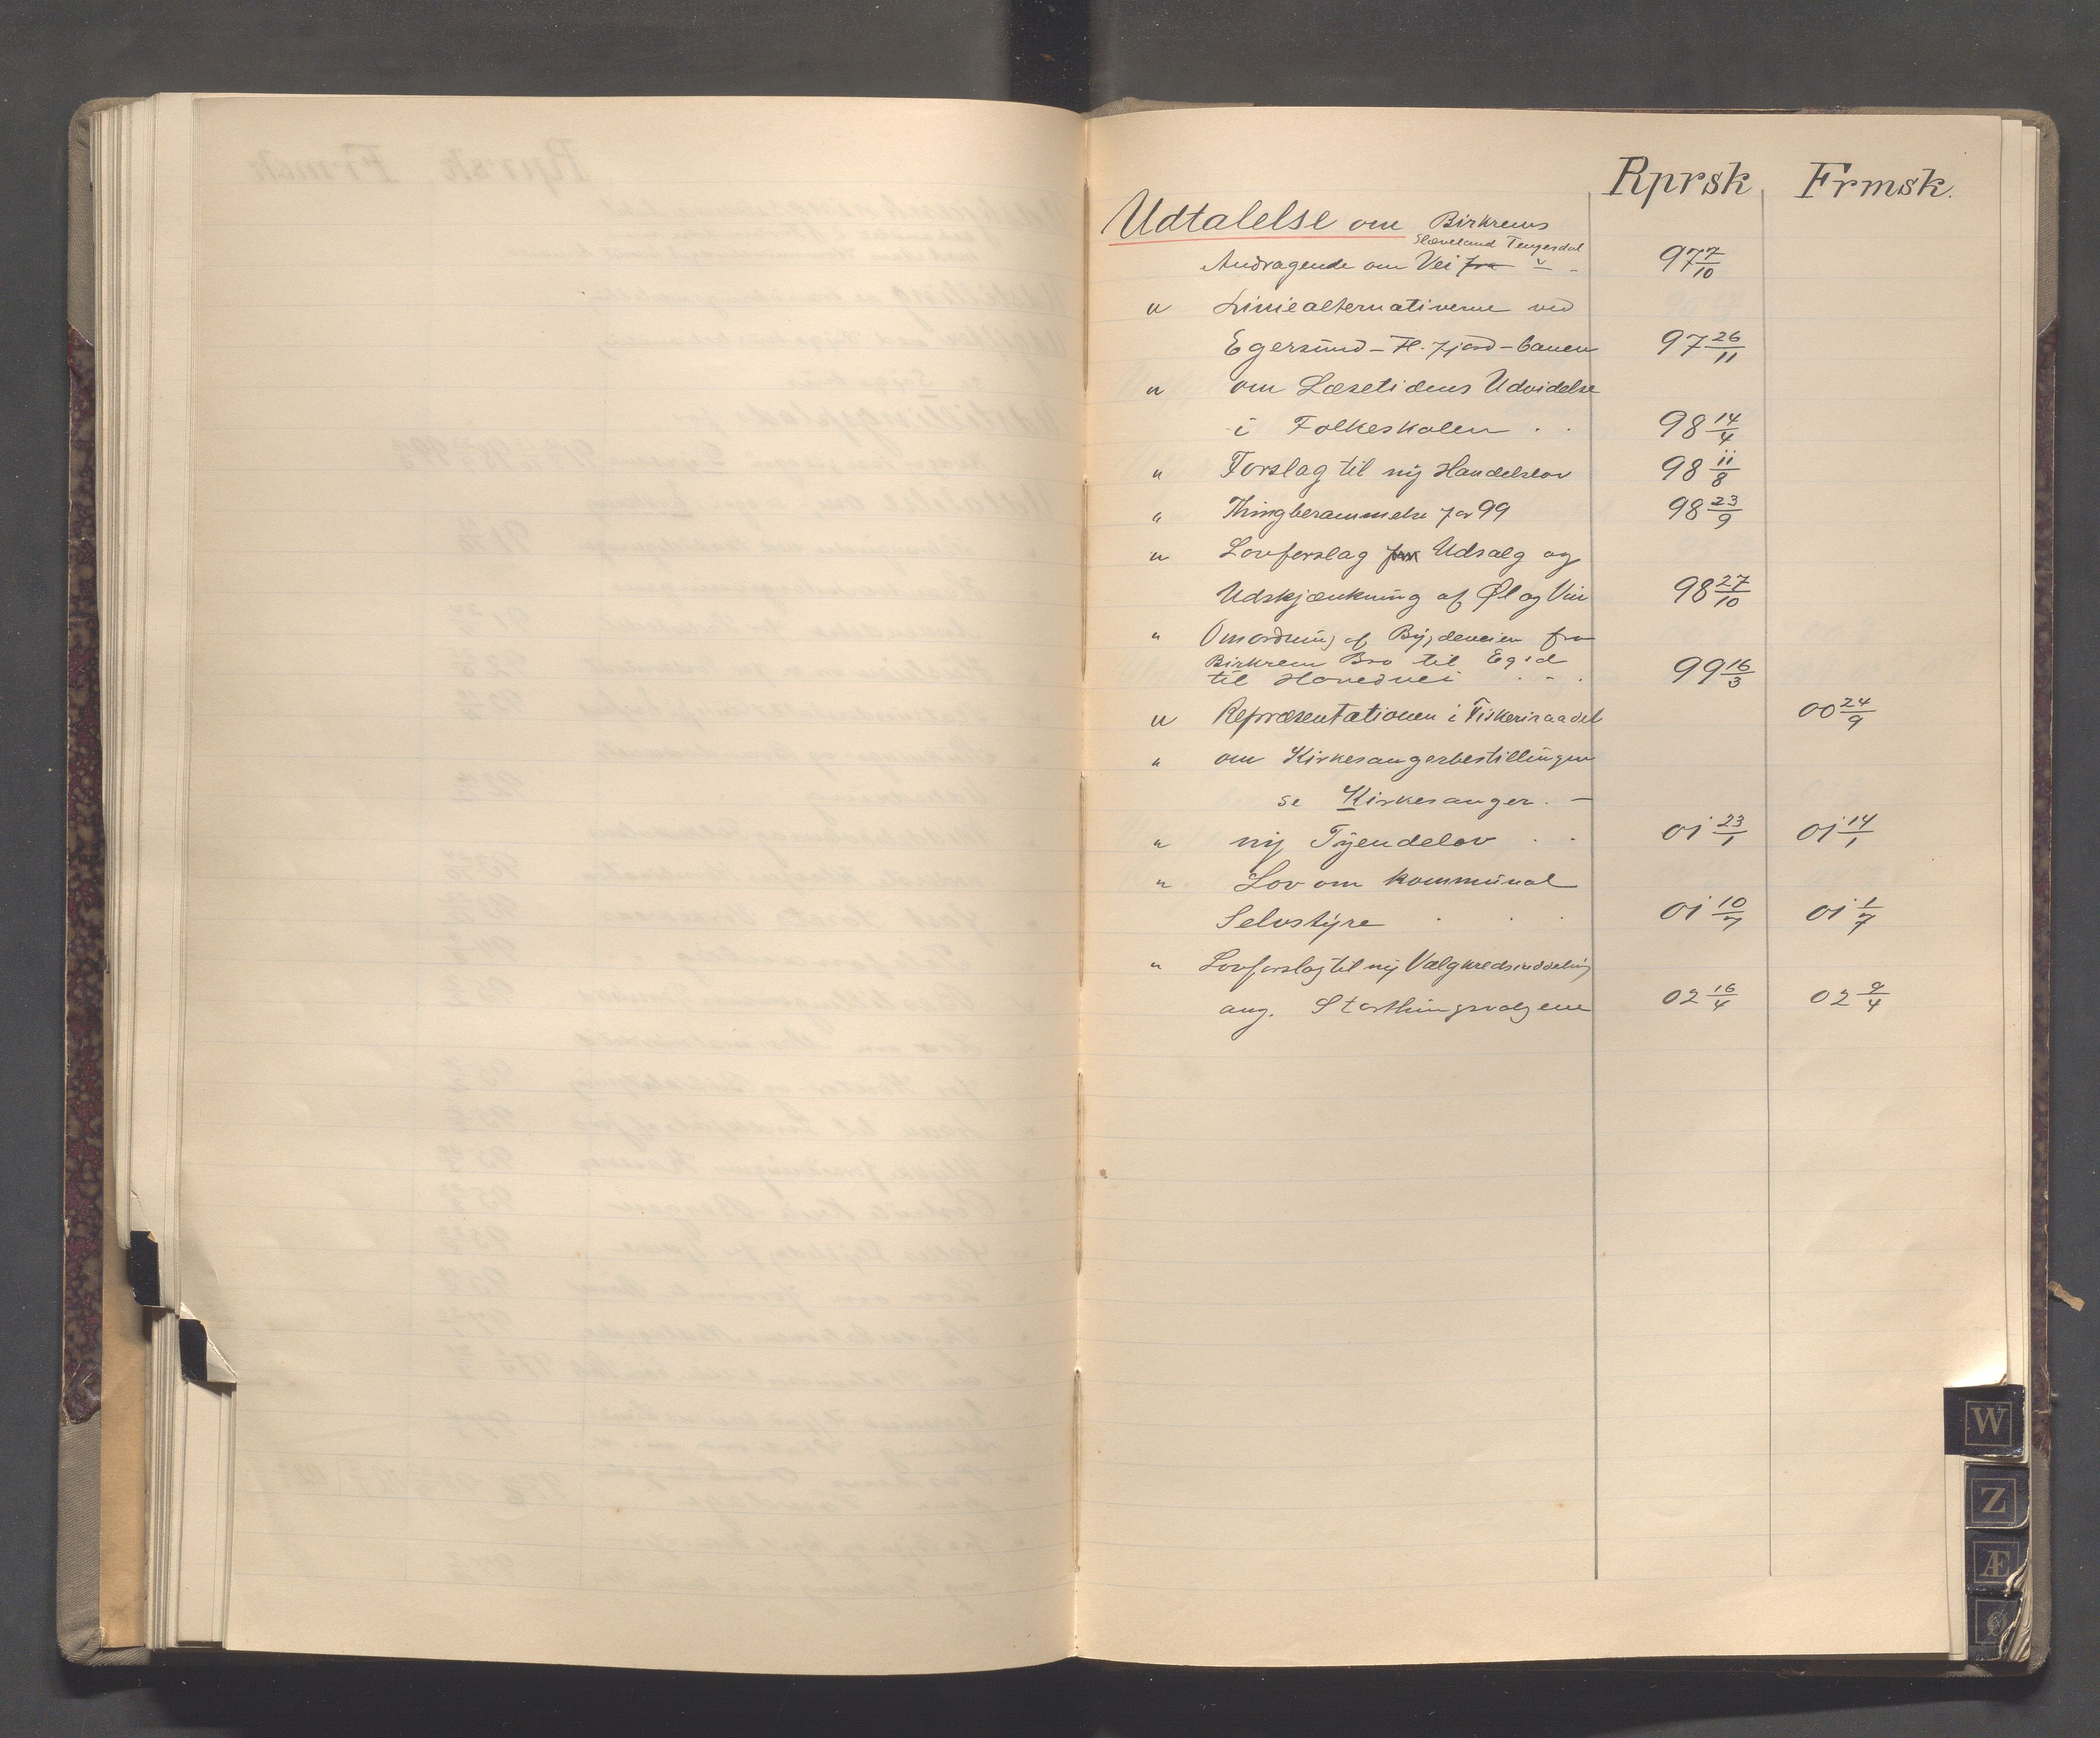 Rprsk Frmsk.
Udtalelse om Birkrems
Slæveland Tengesdal
Andragende om Vei fra " - 97 7/10
" Liniealternativerne ved
Egersund-Fl.fjord-banen 97 26/11
" om Læsetidens Udvidelse
i Folkeskolen . . 98 14/4
" Forslag til ny Handelslov 98 11/8
" Thingberammelse for 99 98 23/9
" Lovforslag Udsalg og
Udskjænkning af Øl og Vin 98 27/10
" Omordning af Bygdeveien fra
Birkrem Bro til Egsd
til Hovedvei . - . 99 16/3
" Repræsentationen i Fiskeriraadet 00 24/9
" om Kirkesangerbestillingen
se Kirkesanger. -
" ny Tyendelov . . 01 23/1 01 14/1
" Lov om kommunal
Selvstyre . . . 01 10/7 01 1/7
" Lovforslag til ny Valgkredsinddeling
ang. Storthingsvalgene 02 16/4 02 9/4
W
Z
Æ
Ø